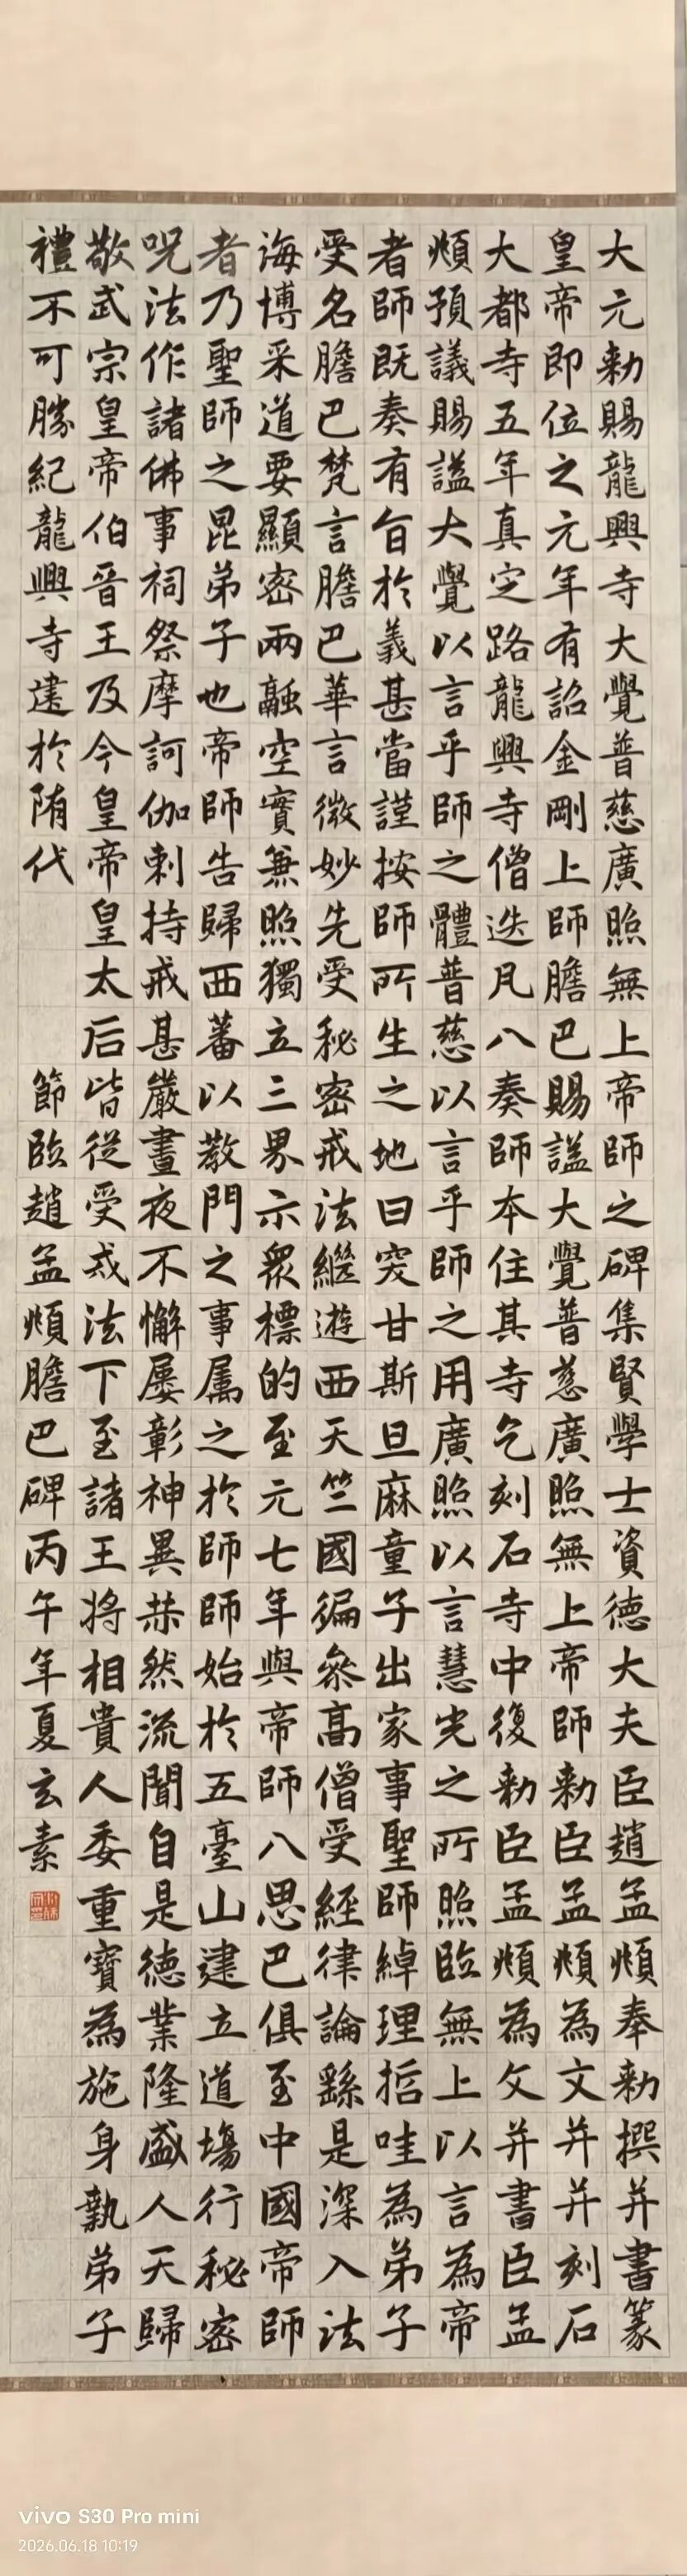 大元勅賜龍興寺大覺普慈廣照無上帝師之碑集賢學士資德大夫臣趙孟頫奉勅撰并書篆
皇帝即位之元年有詔金剛上師膽巴賜謚大覺普慈廣照無上帝師勅臣孟頫為文并并刻石
大都寺五年真定路龍興寺僧迭凡八奏師本住其寺乞刻石寺中復勅臣孟頫為文并書臣孟
頫預議賜謚大覺以言乎師之體普慈以言乎師之用廣照以言慧光之所照臨無上以言為帝
者師既奏有旨於義甚當謹按師所生之地曰突甘斯旦麻童子出家事聖師綽理哲哇為弟子
受名膽巴梵言膽巴華言微妙先受秘密戒法繼遊西天竺國徧參高僧受經律論繇是深入法
海博采道要顯密兩融空實兼照獨立三界示眾標的至元七年與帝師八思巴俱至中國帝師
者乃聖師之昆弟子也帝師告歸西蕃以教門之事属之於師師始於五臺山建立道塲行秘密
呪法作諸佛事祠祭摩訶伽剌持戒甚嚴晝夜不懈屡彰神異赫然流聞自是德業隆盛人天歸
敬武宗皇帝伯晉王及今皇帝皇太后皆從受戒法下至諸王将相貴人委重寶為施身執弟子
禮不可勝紀龍興寺建於隋代
節臨趙孟頫膽巴碑丙午年夏玄素
vivo S30 Pro mini
2026.06.18 10:19